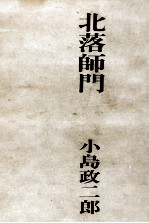 北落師門
小島政二郎